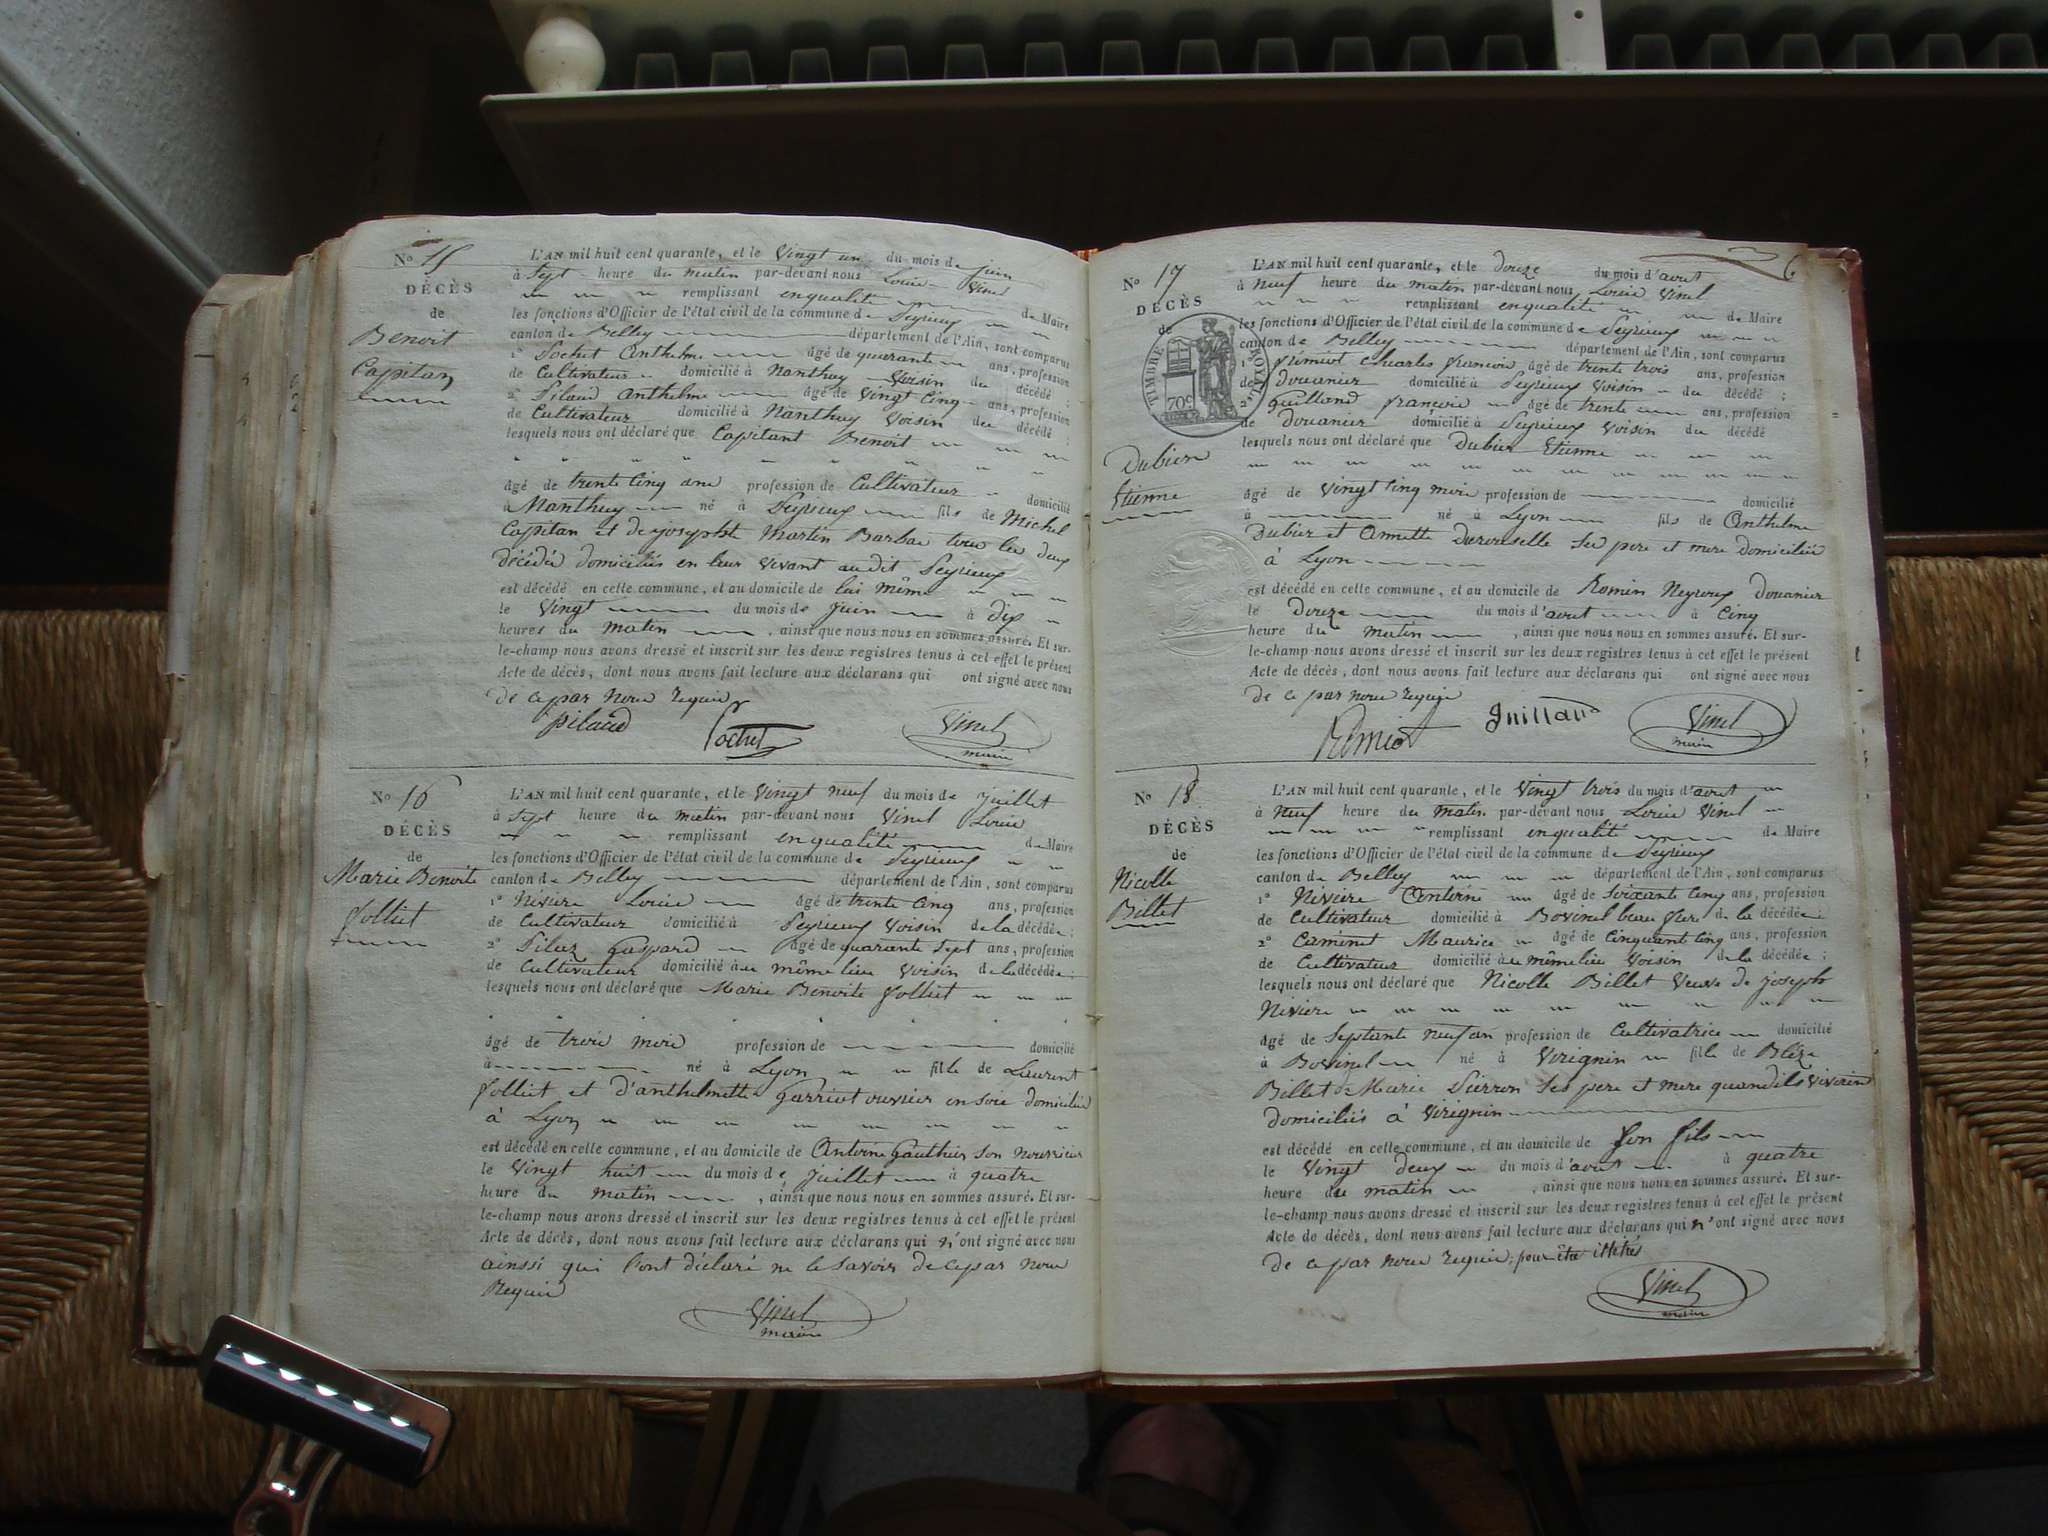 No 15
DÉCÈS
de
Benoit
Capitan
L'AN mil huit cent quarante, et le vingt un du mois de juin
à sept heure du matin par-devant nous Louis Vinel
remplissant en qualité de Maire
les fonctions d'Officier de l'état civil de la commune de Peyrieux
canton de Belley département de l'Ain, sont comparus
1° Pochet Anthelme âgé de quarante ans, profession
de Cultivateur domicilié à Nanthuy voisin du décédé ;
2° Pilaud Anthelme âgé de vingt cinq ans, profession
de Cultivateur domicilié à Nanthuy voisin du décédé ;
lesquels nous ont déclaré que Capitant Benoit
âgé de trente cinq ans profession de Cultivateur domicilié
à Nanthuy né à Peyrieux fils de Michel
Capitan et de josephte Martin Barbas tous les deux
décédés domiciliés en leur vivant audit Peyrieux
est décédé en cette commune, et au domicile de lui même
le vingt du mois de juin à dix
heures du matin , ainsi que nous nous en sommes assuré. Et sur-
le-champ nous avons dressé et inscrit sur les deux registres tenus à cet effet le présent
Acte de décès, dont nous avons fait lecture aux déclarans qui ont signé avec nous
de ce par nous requis
Pilaud Pochet Vinel
maire
No 16
DÉCÈS
de
Marie Benoite
Jolliet
L'AN mil huit cent quarante, et le vingt neuf du mois de juillet
à sept heure du matin par-devant nous Vinel Louis
remplissant en qualité de Maire
les fonctions d'Officier de l'état civil de la commune de Peyrieux
canton de Belley département de l'Ain, sont comparus
1° Nivière Louis âgé de trente cinq ans, profession
de Cultivateur domicilié à Peyrieux voisin de la décédée ;
2° Pilaz Gaspard âgé de quarante sept ans, profession
de Cultivateur domicilié au même lieu voisin de la décédée ;
lesquels nous ont déclaré que Marie Benoite Jolliet
âgé de trois mois profession de domicilié
à né à Lyon fille de Laurent
Jolliet et d'anthelmette Garriot ouvrier en soie domiciliés
à Lyon
est décédé en cette commune, et au domicile de Antoine Gauthier son nourricier
le vingt huit du mois de juillet à quatre
heure du matin , ainsi que nous nous en sommes assuré. Et sur-
le-champ nous avons dressé et inscrit sur les deux registres tenus à cet effet le présent
Acte de décès, dont nous avons fait lecture aux déclarans qui n'ont signé avec nous
ainssi qui l'ont déclaré ne le savoir de ce par nous
Requis
Vinel
maire
6
No 17
DÉCÈS
de
TIMBRE ROYAL
70c
Dubier
Etienne
L'AN mil huit cent quarante, et le douze du mois d'aout
à neuf heure du matin par-devant nous Louis Vinel
remplissant en qualité de Maire
les fonctions d'Officier de l'état civil de la commune de Peyrieux
canton de Belley département de l'Ain, sont comparus
1° Rémiot Charles françois âgé de trente trois ans, profession
de douanier domicilié à Peyrieux voisin du décédé ;
2° Guilland françois âgé de trente ans, profession
de douanier domicilié à Peyrieux voisin du décédé
lesquels nous ont déclaré que Dubier Etienne
âgé de vingt cinq mois profession de domicilié
à né à Lyon fils de Anthelme
Dubier et Annette Durouselle ses pere et mere domiciliés
à Lyon
est décédé en cette commune, et au domicile de Romin Neyroux douanier
le douze du mois d'aout à cinq
heure du matin , ainsi que nous nous en sommes assuré. Et sur-
le-champ nous avons dressé et inscrit sur les deux registres tenus à cet effet le présent
Acte de décès, dont nous avons fait lecture aux déclarans qui ont signé avec nous
de ce par nous requis
Rémiot Guilland Vinel
maire
No 18
DÉCÈS
de
Nicolle
Billet
L'AN mil huit cent quarante, et le vingt trois du mois d'aout
à neuf heure du matin par-devant nous Louis Vinel
remplissant en qualité de Maire
les fonctions d'Officier de l'état civil de la commune de Peyrieux
canton de Belley département de l'Ain, sont comparus
1° Nivière Antoine âgé de soixante cinq ans, profession
de Cultivateur domicilié à Bovinel beau frere de la décédée ;
2° Caminet Maurice âgé de cinquant cinq ans, profession
de Cultivateur domicilié au même lieu voisin de la décédée ;
lesquels nous ont déclaré que Nicolle Billet veuve de joseph
Nivière
âgé de septante neuf an profession de Cultivatrice domicilié
à Bovinel né à Virignin fille de Blèze
Billet & Marie Pierron ses pere et mere quand ils vivoient
domiciliés à Virignin
est décédé en cette commune, et au domicile de son fils
le vingt deux du mois d'aout à quatre
heure du matin , ainsi que nous nous en sommes assuré. Et sur-
le-champ nous avons dressé et inscrit sur les deux registres tenus à cet effet le présent
Acte de décès, dont nous avons fait lecture aux déclarans qui n'ont signé avec nous
de ce par nous requis pour être illitrés
Vinel
maire